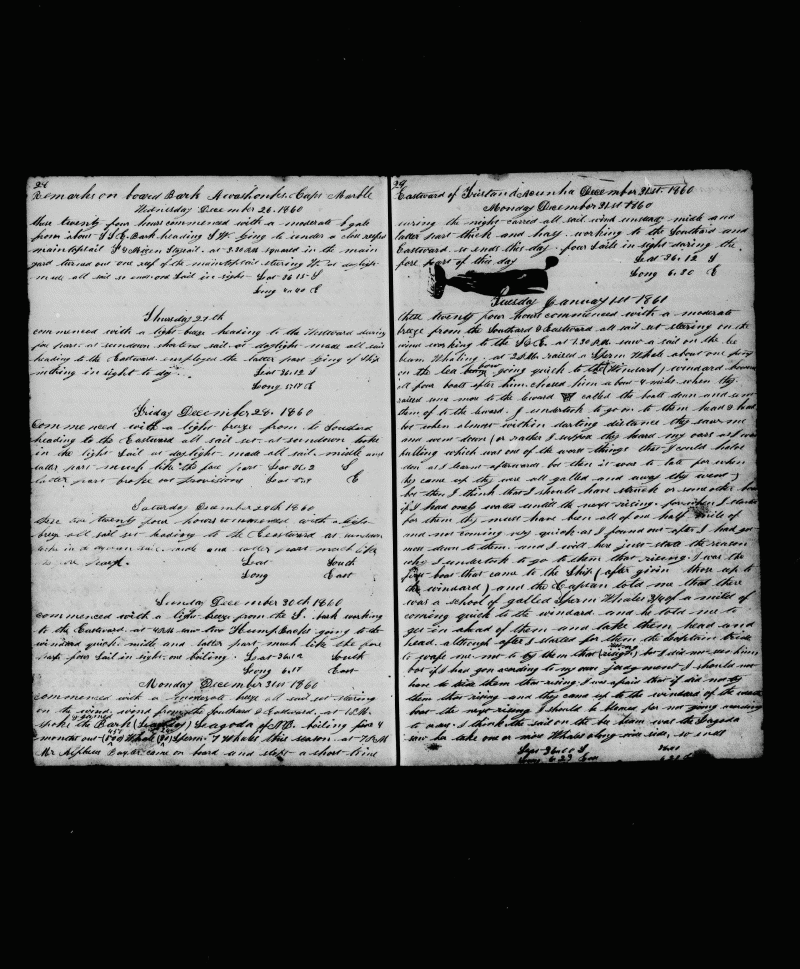 28
Remarks on board Bark Awashonks, Capt Marble
Wednesday December 26. 1860
these twenty four hours commenced with a moderate gale
from about S S E. Bark heading S W going to under a close reefed
maintopsail yard at 3.30 A.M squared in the main
yard turned out one reef of the maintopsail stering at daylight
made all sail so ends one sail in sight Lat 36.15 S
Long 4.40 E
Thursday 27th
commenced with a light breeze heading to the Westward during
fore part; at sundown shortend sail. at daylight made all sail
heading to the Eastward employed the latter part of Ship
nothing in sight to day Lat 36.12 S
Long E
Friday December 28. 1860
Commenced with a light breeze from to Southard
heading to the Eastward all sail set. at sundown took
in the light sail at daylight made all sail. middle and
latter part much like the fore part Lat 36.2 S
latter part broke out provisions Long E
Saturday December 29th 1860
these twenty four hours commenced with a light
breeze all sail set heading to the Eastward at sundown
took in sail. middle and latter part much like
the fore part. Lat South
Long East
Sunday December 30th 1860
commenced with a light breeze from the S. bark working
to the Eastward. at 4 P.M saw two HumpBacks going to the
windard quick. midle and latter part much like the fore
part four sail in sight. one boiling. Lat South
Long 6.17 East
Monday December 31st 1860
commenced with a moderate breeze all sail set stering
on the wind. wind from the Southard & Eastward, at 1 P.M.
spoke the Bark Lagoda of N.B. boiling five 4
months out Whale Sperm. 7 Whales this season at 7 P.M
Mr came on board and stopt a short time
29
Eastward of Tristand Acunha December 31st. 1860
Monday December 31st 1860
during the night carred all sail wind unsteady midle and
latter part thick and hazy. working to the Southard and
Eastward so ends this day. four Sails in sight during the
fore part of this day Lat 36.12 S
Long 6.20 E
Tuesday January 1st 1861
these twenty four hours commenced with a moderate
breeze from the Southard & Eastward all sail set stering on the
wind working to the S & E. at 1.30 P.M. saw a sail on the lee
beam Whaling. at 2 P.M. raised a Sperm Whale about one point
on the lea bow going quick to the (Windard) windard lowered
at four boats after him. chased him about 4 miles when they
raised some more to the leward called the boats down and sent
them of to the leward. I undertook to go on to them head & head
but when almost within darting distance they saw me
and went down (or rather I suppose they heard my oars as I was
pulling which was one of the worst things that I could have
don as I learnt afterwards but then it was to late for when
they came up they were all gallied and away they went)
but then I think that I should have struck or some other boat
if I had only waited untill the next rising. for when I started
for them they must have been all of one half mile of
and not coming very quick as I found out after I had got
most down to them. and I will here just state the reason
why I undertook to go to them that riseing. I was the
first boat that came to the Ship (after givin those up to
the windard) and the Captean told me that there
was a school of gallied Sperm Whales 3/4 of a mile of
coming quick to the windard and he told me to
get in ahead of them and take them head and
head. although after I started for them the Captain tried
to wafe me not to try them that rising, but I did not see him
but if I had gon acording to my own judgment I should not
have to tride them that rising I was afraid that if did not try
them that rising and they came up to the windard of me
that the next rising I should be blamed for not going acording
to orders. I think the sail on the lee beam was the Lagoda
saw her take one or more Whales along side side, so ends
Lat S
Long 6.23 East